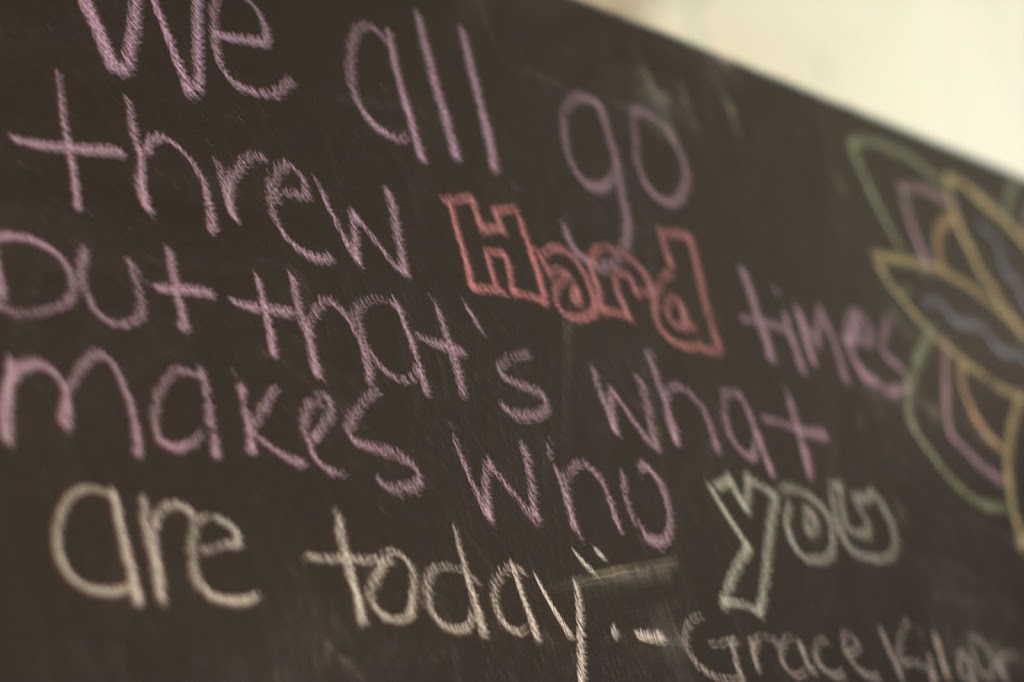 We all go
threw Hard times
but that's what
makes who you
are today.- Grace Kilgor